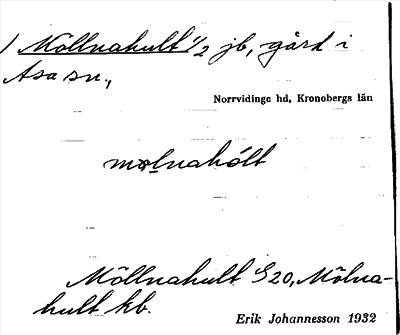 Möllnahult 1/2 jb, gård i
Asa sn.,
Norrvidinge hd, Kronobergs län
Möllnahult G20, Mölna-
hult kb.
Erik Johannesson 1932